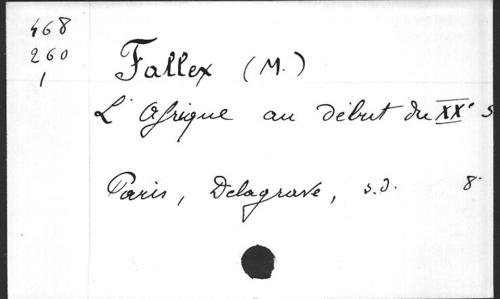 468
260
1
Fallex (M.)
L'Afrique au début du XXe s
Paris, Delagrave, s.d. 8°